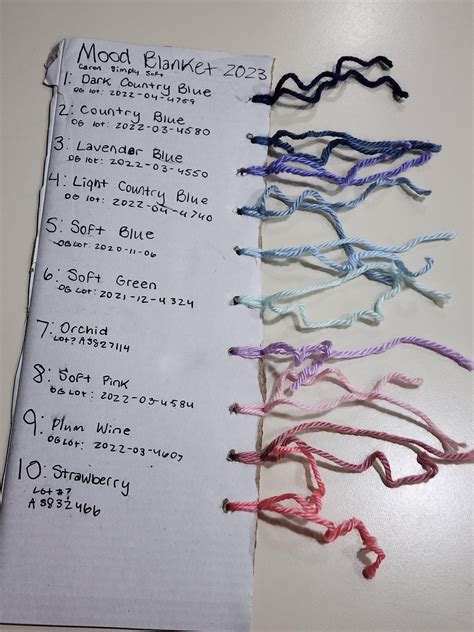 Mood Blanket 2023
Caron Simply Soft
1: Dark Country Blue
OG lot: 2022-04-4759
2: Country Blue
OG lot: 2022-03-4580
3: Lavender Blue
OG lot: 2022-03-4550
4: Light Country Blue
OG lot: 2022-04-4740
5: Soft Blue
OG Lot: 2020-11-06
6: Soft Green
OG Lot: 2021-12-4324
7: Orchid
Lot? AS827114
8: Soft Pink
OG Lot: 2022-03-4584
9: Plum Wine
OG Lot: 2022-03-4607
10: Strawberry
Lot #?
AS832466